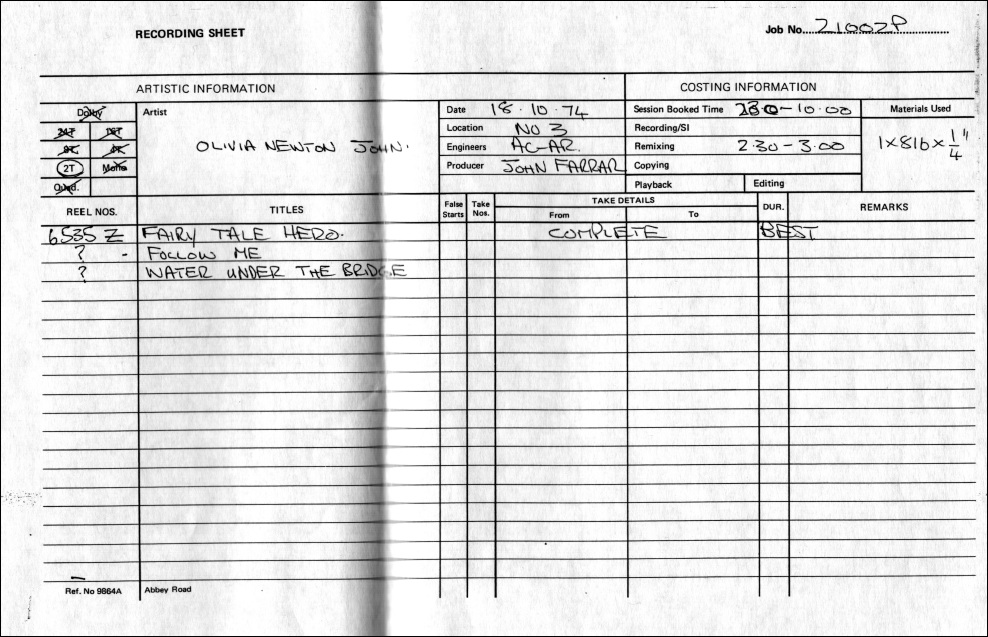 RECORDING SHEET
Job No. 21002P
ARTISTIC INFORMATION
COSTING INFORMATION
Dolby
24T 16T
8T 4T
2T Mono
Quad.
Artist
OLIVIA NEWTON JOHN.
Date 18.10.74
Location No 3
Engineers AC-AR.
Producer JOHN FARRAR
Session Booked Time 2.30-10.00
Recording/SI
Remixing 2.30-3.00
Copying
Playback Editing
Materials Used
1x816x1/4"
REEL NOS. TITLES False Starts Take Nos. TAKE DETAILS From To DUR. REMARKS
6535 Z FAIRY TALE HERO. COMPLETE BEST
? - FOLLOW ME
? WATER UNDER THE BRIDGE
Ref. No 9864A Abbey Road